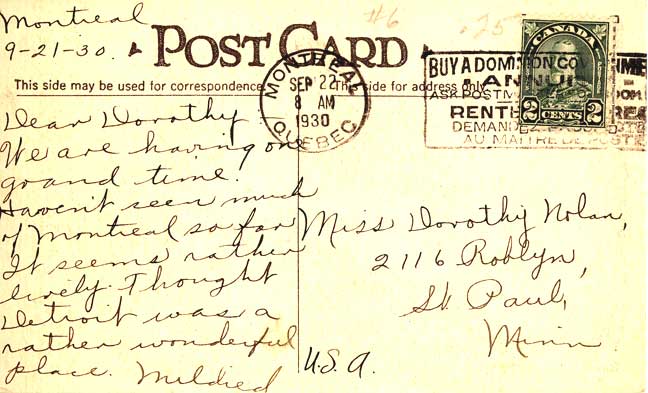 Montreal
9-21-30.
#6
.25
POST CARD
This side may be used for correspondence.
The side for address only.
MONTREAL
SEP 22
8 AM
1930
QUEBEC
BUY A DOMINION GOV
ASK POSTM
RENTE
DEMAND
AU MAITRE DE POSTE
CANADA
2 CENTS 2
Dear Dorothy -
We are having one
grand time.
Haven't seen much
of Montreal so far
It seems rather
lively. Thought
Detroit was a
rather wonderful
place. Mildred
Miss Dorothy Nolan,
2116 Roblyn,
St. Paul,
Minn.
U.S.A.